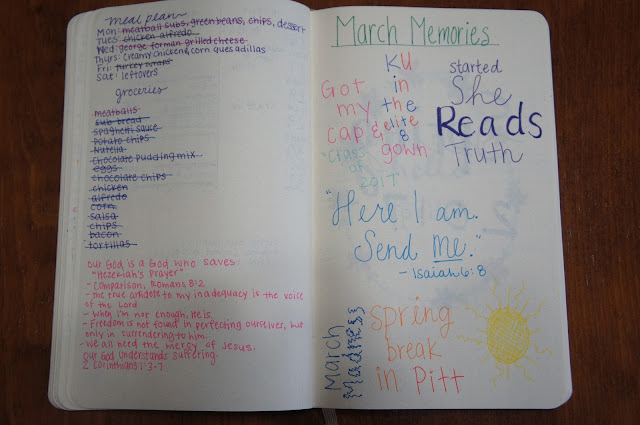 meal plan
Mon: meatball subs, green beans, chips, dessert
Tues: chicken alfredo
Wed: george forman grilled cheese
Thurs: Creamy chicken, corn quesadillas
Fri: turkey wraps
Sat: leftovers
groceries
meatballs
sub bread
spaghetti sauce
potato chips
Nutella
chocolate pudding mix
eggs
chocolate chips
chicken
alfredo
corn
salsa
chips
bacon
tortillas
our God is a God who saves
"Hezekiah's Prayer"
- Comparison, Romans 8:2
- the true antidote to my inadequacy is the voice
of the Lord
- When I'm not enough, He is.
- Freedom is not found in perfecting ourselves, but
only in surrendering to him.
- We all need the mercy of Jesus.
Our God understands suffering.
2 Corinthians 1:3-7
March Memories
Got
my
cap &
gown
"Class
of
2017"
KU
in
the
elite
8
started
She
Reads
Truth
"Here I am.
Send me."
- Isaiah 6:8
March
Madness
spring
break
in Pitt